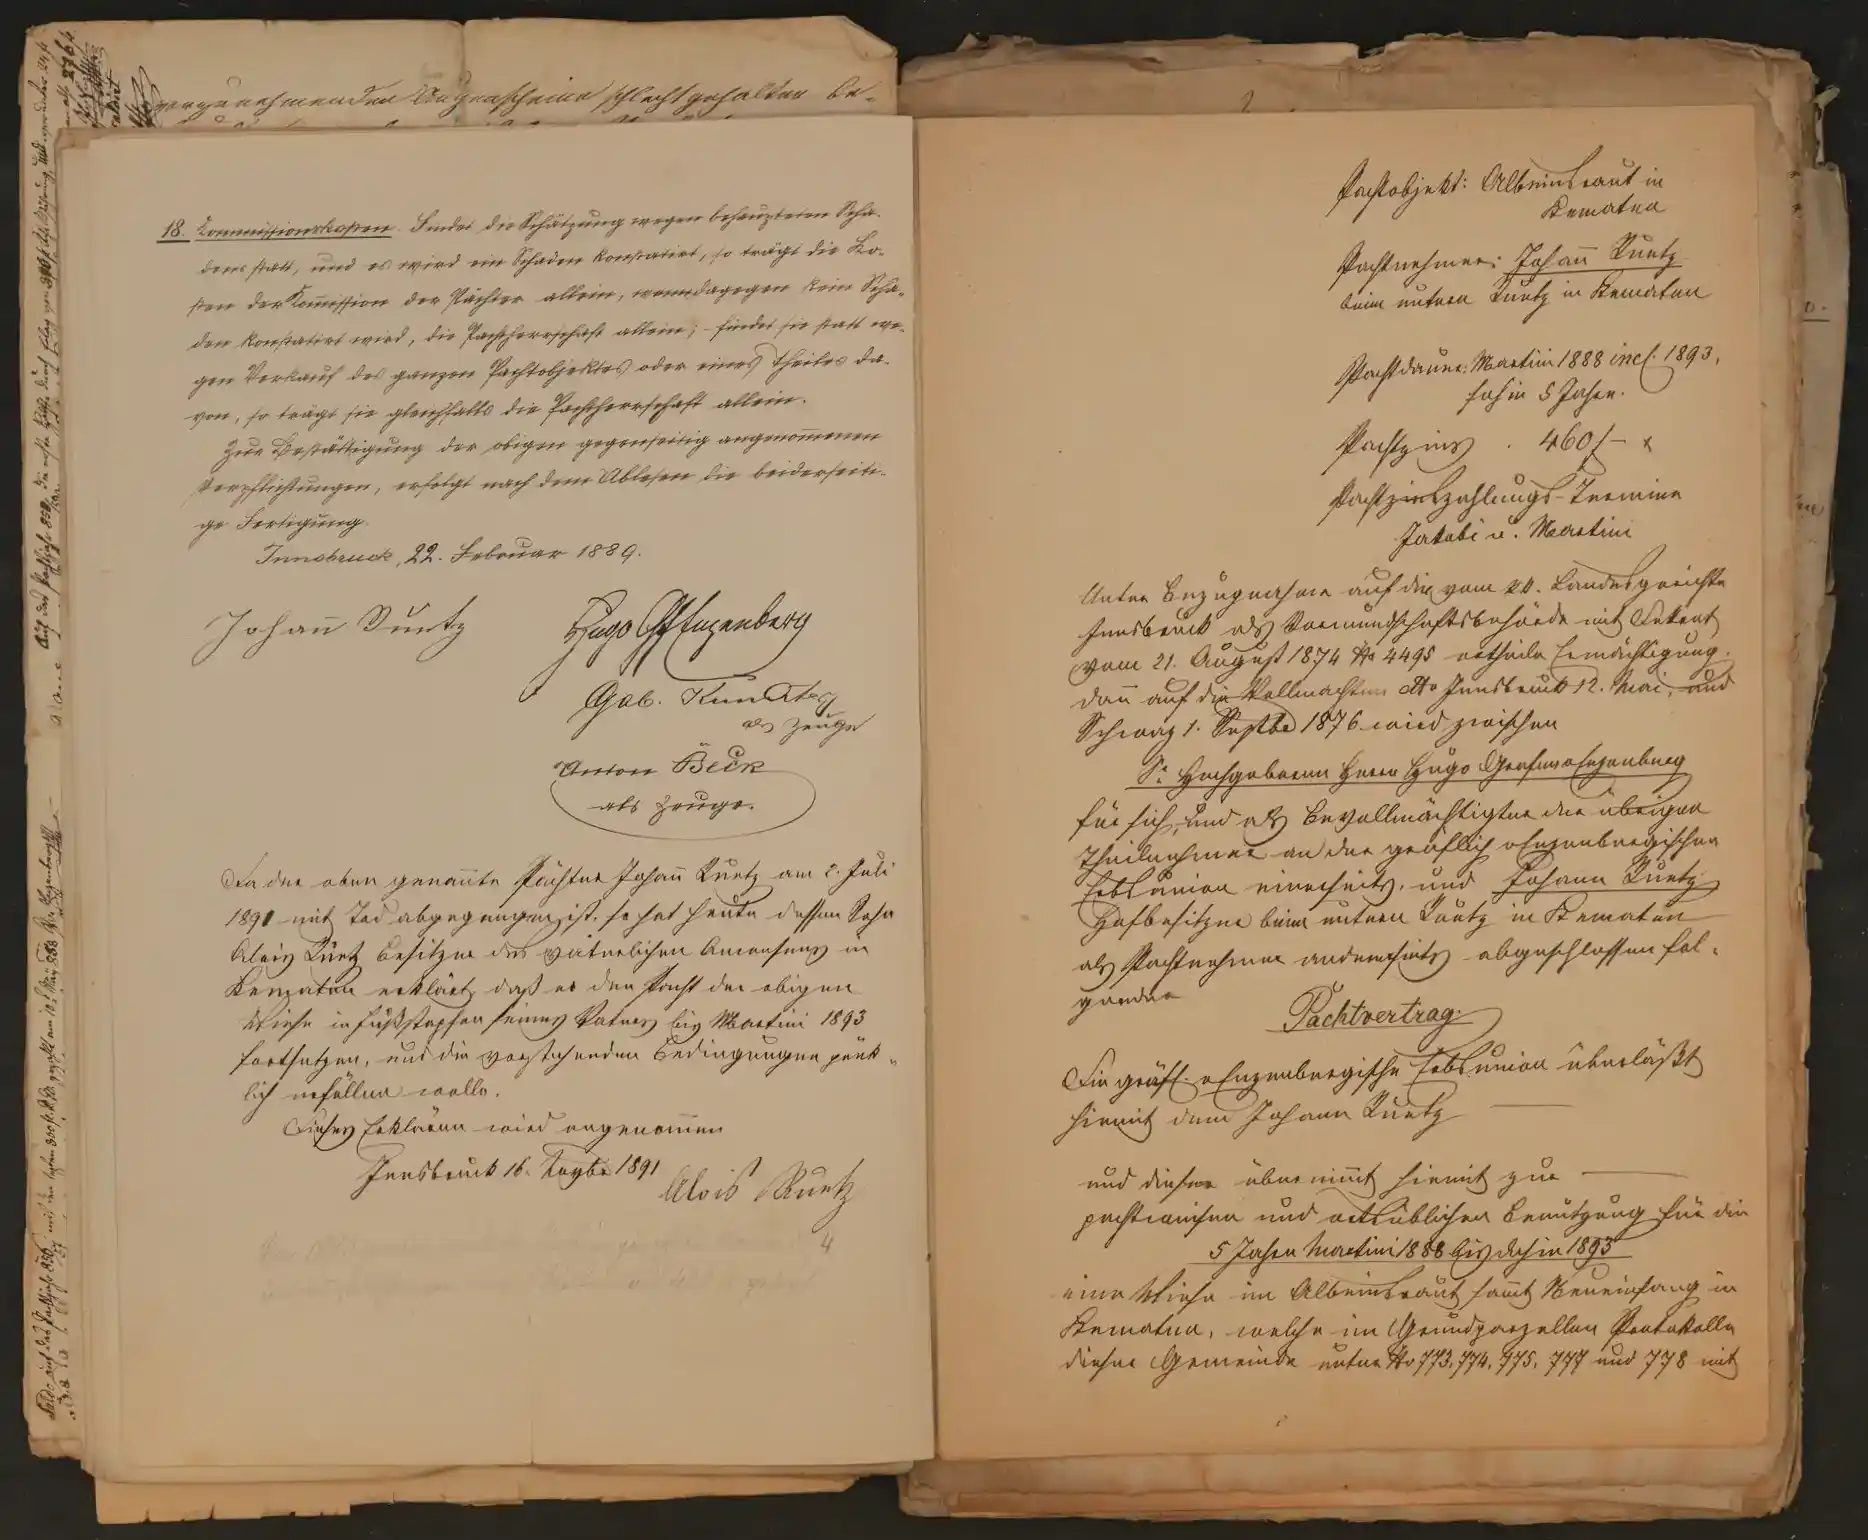 vorzunehmenden Augenscheine schlecht gehalten be-
18. Commissionskosten. Findet die Schätzung wegen behaupteten Scha-
dens statt, und es wird ein Schaden konstatirt, so trägt die Ko-
sten der Com̅ission der Pächter allein, wenn dagegen kein Scha-
den konstatirt wird, die Pachtherrschaft allein; findet sie statt we-
gen Verkauf des ganzen Pachtobjektes oder eines Theiles da-
von, so trägt sie gleichfalls die Pachtherrschaft allein.
Zur Bestättigung der obigen gegenseitig angenom̅enen
Verpflichtungen, erfolgt nach dem Ablesen die beiderseiti-
ge Fertigung.
Innsbruck, 22. Februar 1889.
Johan̅ Ruetz
Hugo Gf Enzenberg
Gab.
als Zeuge
Anton Beck
als Zeuge.
Da der oben genan̅te Pächter Johan̅ Ruetz am 2. Juli
1891 mit Tod abgegangen ist, so hat heute dessen Sohn
Alois Ruetz Besitzer des väterlichen Anwesens in
Kematen erklärt, daß er den Pacht der obigen
Wiese in Fußstapfen seines Vaters bis Martini 1893
fortsetzen, und die vorstehenden Bedingungen pünk-
lich erfüllen wolle.
Dieses Erklären wird angenom̅en
Innsbruck 16. 1891
Alois Ruetz
4
Pachtobjekt: Albeinskraut in
Kematen
Pachtnehmer: Johan̅ Ruetz
beim untern Ruetz in Kematen
Pachtdauer: Martini 1888 incl. 1893,
sohin 5 Jahre.
Pachtzins . 460 f – x
Pachtzinszahlungs-Termine
Jakobi u. Martini
Unter Bezugnahme auf die vom kk. Landesgerichte
Innsbruck als Vormundschaftsbehörde mit Dekret
vom 21. August 1874 No 4495 ertheilte Ermächtigung,
dan̅ auf die Vollmachten dto Innsbruck 12. Mai, und
Schwaz 1. Septbr 1876 wird zwischen
Sr. Hochgeboren Herrn Hugo Grafen v Enzenberg
für sich, und als Bevollmächtigter der übrigen
Theilnehmer an der gräflich v Enzenbergischen
Erbsunion einerseits, und Johann Ruetz
Hofbesitzer beim untern Ruetz in Kematen
als Pachtnehmer anderseits abgeschlossen fol-
gender
Pachtvertrag:
Die gräfl. v Enzenbergische Erbsunion überläßt
hiemit dem Johann Ruetz
und dieser übernim̅t hiemit zur
pachtweisen und ortsüblichen Benützung für die
5 Jahre Martini 1888 bis dahin 1893
eine Wiese im Albeinskraut sam̅t Neueinfang in
Kematen, welche im Grundparzellen Protokolle
dieser Gemeinde unter No 773, 774, 775, 777 und 778 mit